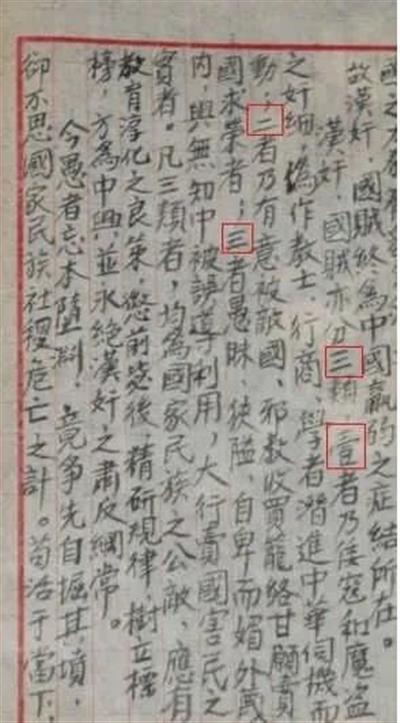 國之
故漢奸，國賊終為中國羸弱之症結所在。
漢奸，國賊亦分三類，壹者乃倭寇和魔盜
之奸细，偽作教士、行商、學者潛進中華伺機而
動；二者乃有意被敵國、邪教收買籠絡甘願賣
國求榮者；三者愚昧、狹隘、自卑而媚外或
內，與無知中被誤導利用，大行賣國害民之
實者。凡三類者，均為國家民族之公敵，應有
教育淳化之良策，懲前毖後，精研規律，樹立標
榜，方為中興，並永絕漢奸之肅反綱常。
今愚者忘本墮淵，竟爭先自掘其墳，
卻不思國家民族社稷危亡之計。苟活于當下，